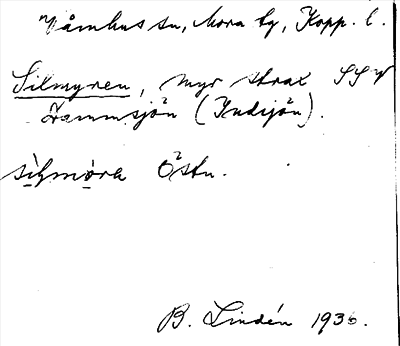 Våmhus sn, Mora tg, Kopp. l.
Silmyren, myr strax SSV
Jammsjön (Indsjön).
Östn.
B. Lindén 1936.